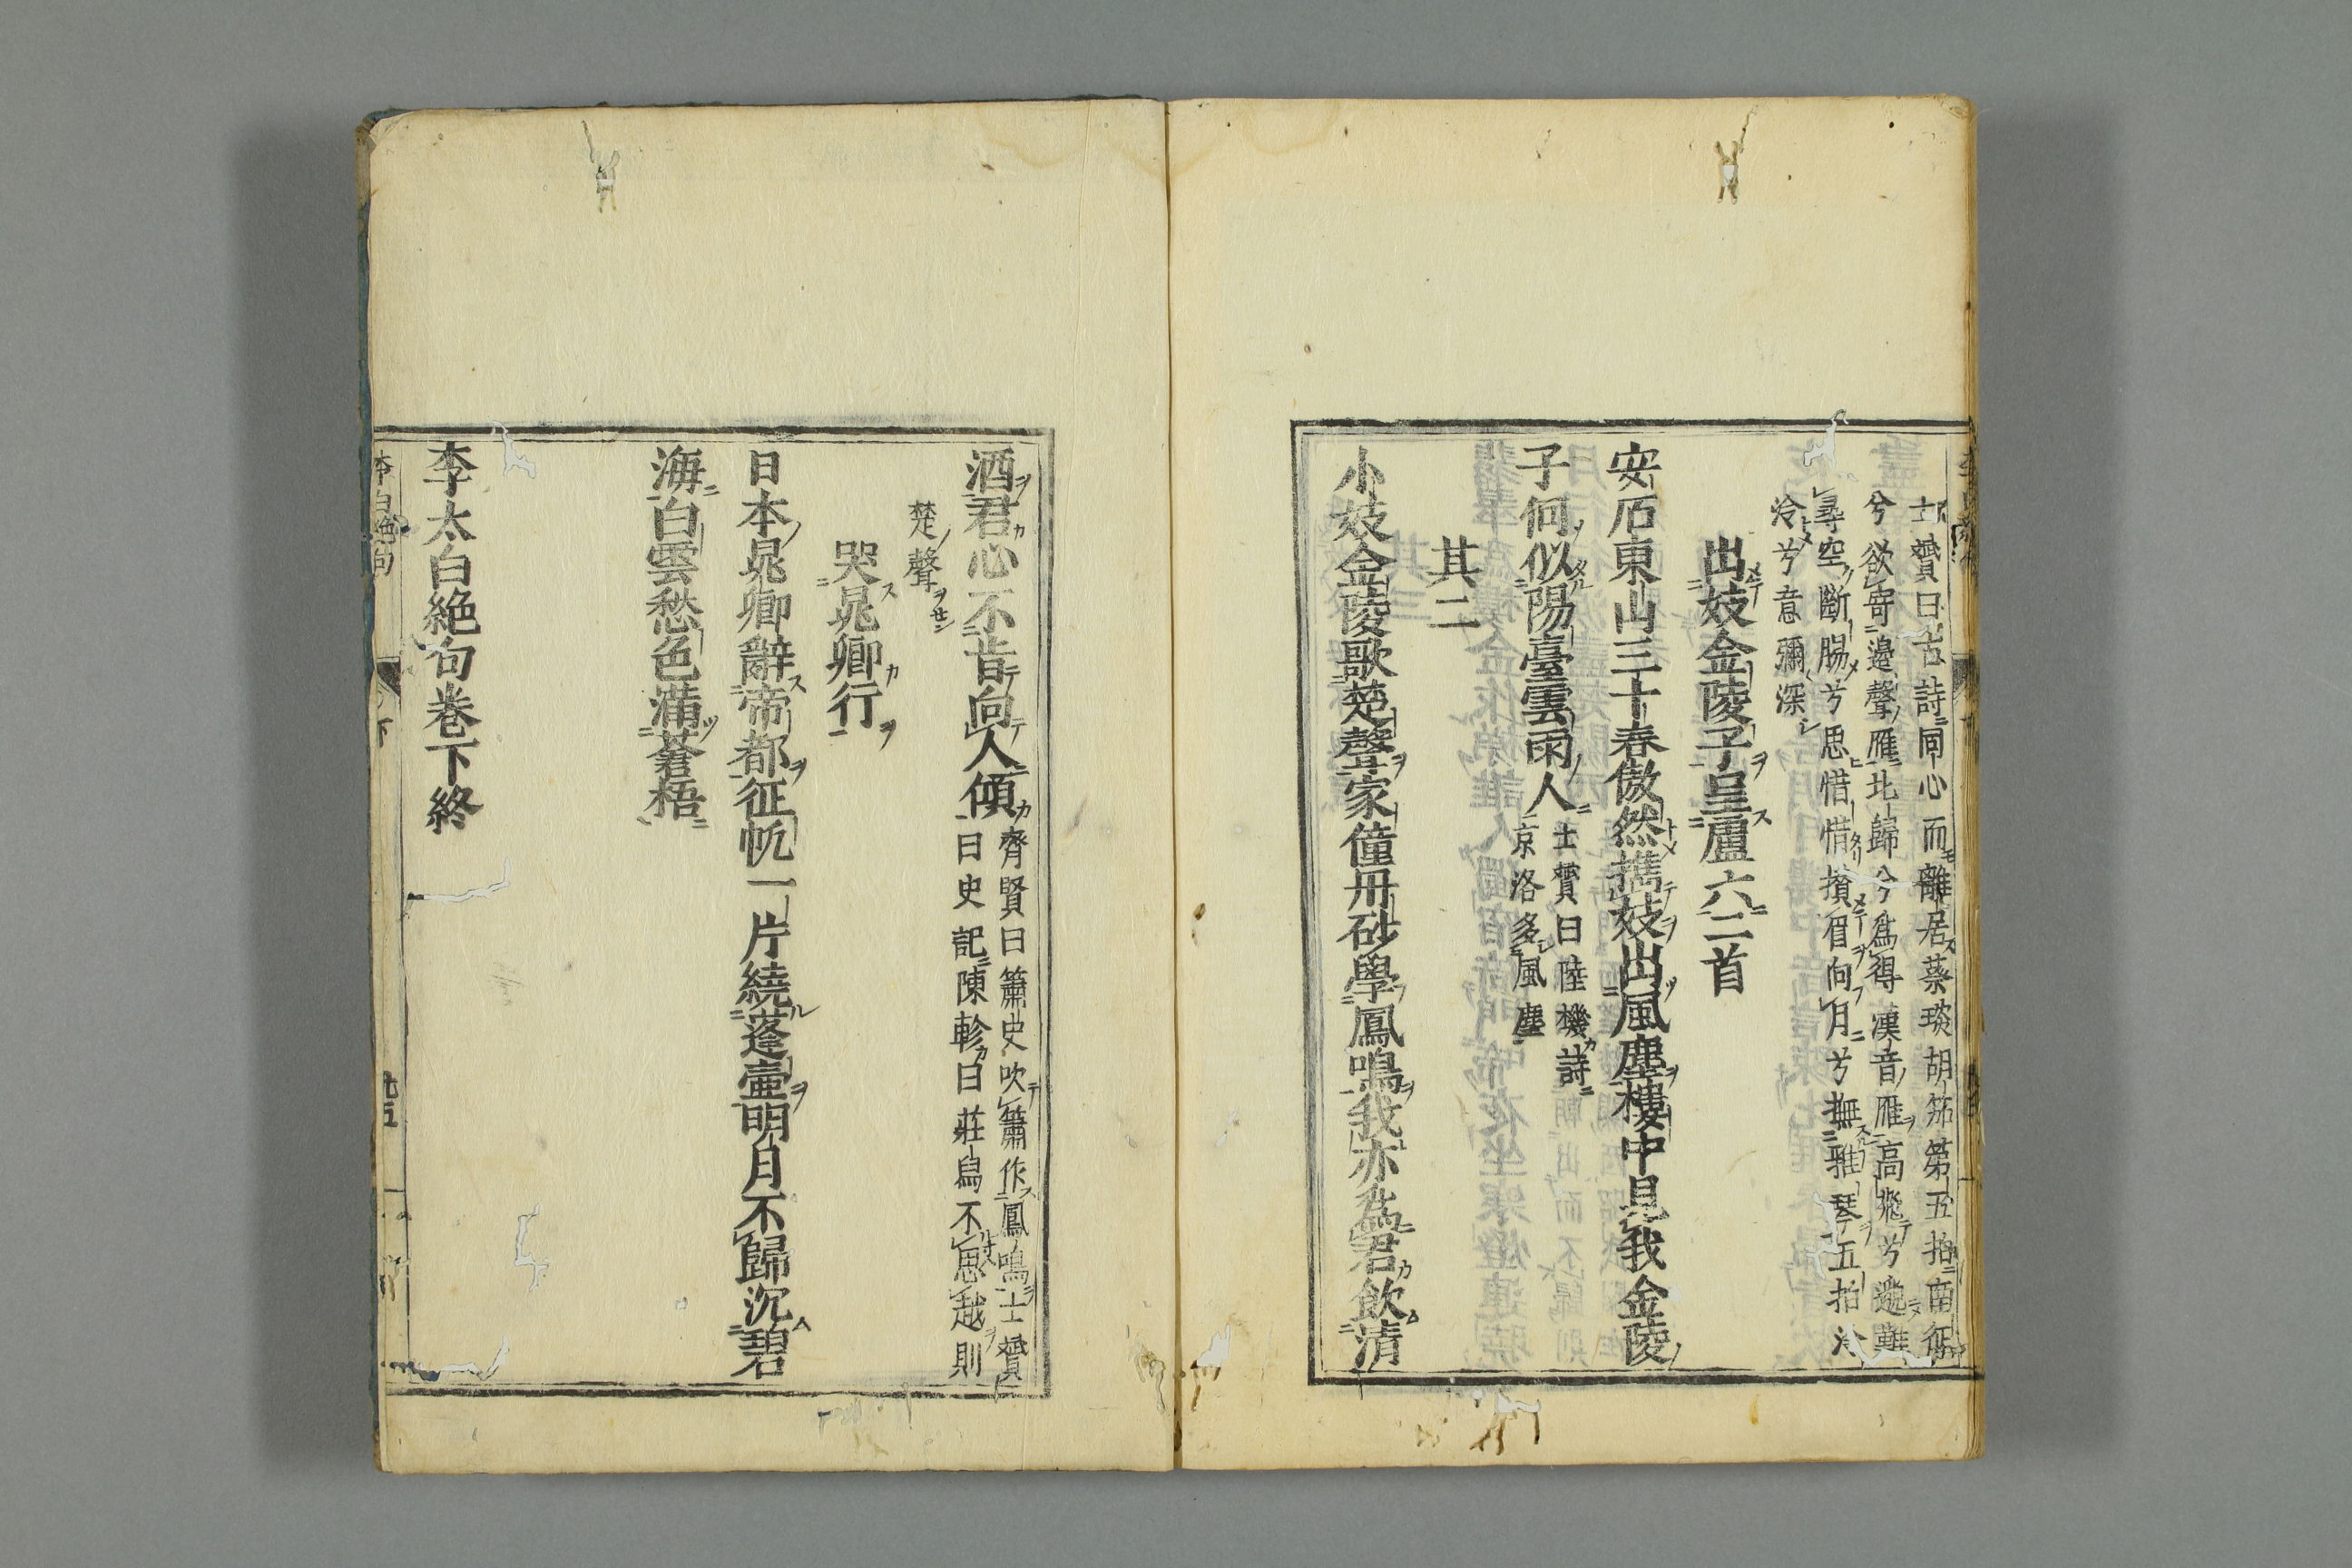 士贇曰古詩同心而離居蔡琰胡笳第五拍南征
兮欲寄邉聲雁北歸兮爲得漢音雁高飛兮邈難
尋空斷腸兮思愔愔攢眉向月兮撫雅琴五拍泠
泠兮意彌深
出妓金陵子呈盧六二首
安石東山三十春傲然擕妓出風塵樓中見我金陵
子何似陽臺雲雨人
士贇曰陸機詩
京洛多風塵
其二
小妓金陵歌楚聲家僮丹砂學鳳鳴我亦爲君飲清
酒君心不肯向人傾
齊賢曰簫史吹簫作鳳鳴士贇
曰史記陳軫曰莊舄不思越則
楚聲
哭晁卿行
日本晁卿辭帝都征帆一片繞蓬壷明月不歸沉碧
海白雲愁色滿蒼梧
李太白絶句巻下終
李白絶句 下 九五